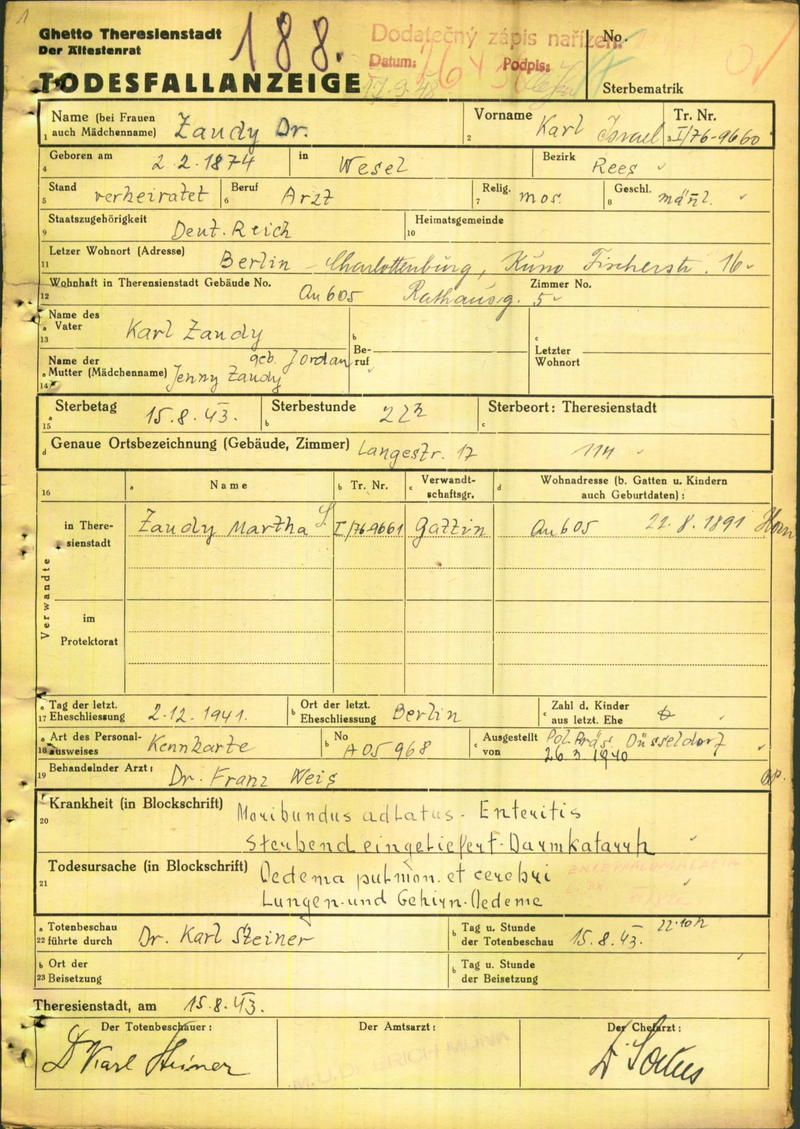 1
Ghetto Theresienstadt
Der Ältestenrat
188.
Dodatečný zápis nařízen:
Datum: Podpis:
No.
TODESFALLANZEIGE
Sterbematrik
Name (bei Frauen auch Mädchenname) Zaudy Dr. Vorname Karl Israel Tr. Nr. I/76-9660
1 2 3
Geboren am 2.2.1874 in Wesel Bezirk Rees
4
Stand verheiratet Beruf Arzt Relig. mos. Geschl. männl.
5 6 7 8
Staatszugehörigkeit Deut. Reich Heimatsgemeinde
9 10
Letzer Wohnort (Adresse) Berlin - Charlottenburg, Kuno Fischerstr. 16
11
Wohnhaft in Theresienstadt Gebäude No. Au 605 Rathausg. 5 Zimmer No.
12
Name des Vater Karl Zaudy
13
b Beruf
c Letzter Wohnort
Name der Mutter (Mädchenname) Jenny Zaudy geb. Jordan
14
a Sterbetag 15.8.43. b Sterbestunde 22h c Sterbeort: Theresienstadt
15
d Genaue Ortsbezeichnung (Gebäude, Zimmer) Langestr. 17 114
16 a Name b Tr. Nr. c Verwandtschaftsgr. d Wohnadresse (b. Gatten u. Kindern auch Geburtdaten):
Verwandte
in Theresienstadt Zaudy Martha S. I/76-9661 Gattin Au 605 22.8.1891
im Protektorat
a Tag der letzt. Eheschliessung 2.12.1941. b Ort der letzt. Eheschliessung Berlin c Zahl d. Kinder aus letzt. Ehe
17
a Art des Personalausweises Kennkarte b No A 05968 c Ausgestellt von Pol. Präs. Düsseldorf
18 26.3.1940
Behandelnder Arzt: Dr. Franz Weis
19
Krankheit (in Blockschrift) Moribundus adlatus - Enteritis
20
Sterbend eingeliefert - Darmkatarrh
Todesursache (in Blockschrift) Oedema pulmon. et cerebri
21
Lungen- und Gehirn-Oedeme
a Totenbeschau führte durch Dr. Karl Steiner b Tag u. Stunde der Totenbeschau 15.8.43. 22.10h
22
b Ort der Beisetzung b Tag u. Stunde der Beisetzung
23
Theresienstadt, am 15.8.43.
Der Totenbeschauer: Der Amtsarzt: Der Chefarzt:
Dr Karl Steiner